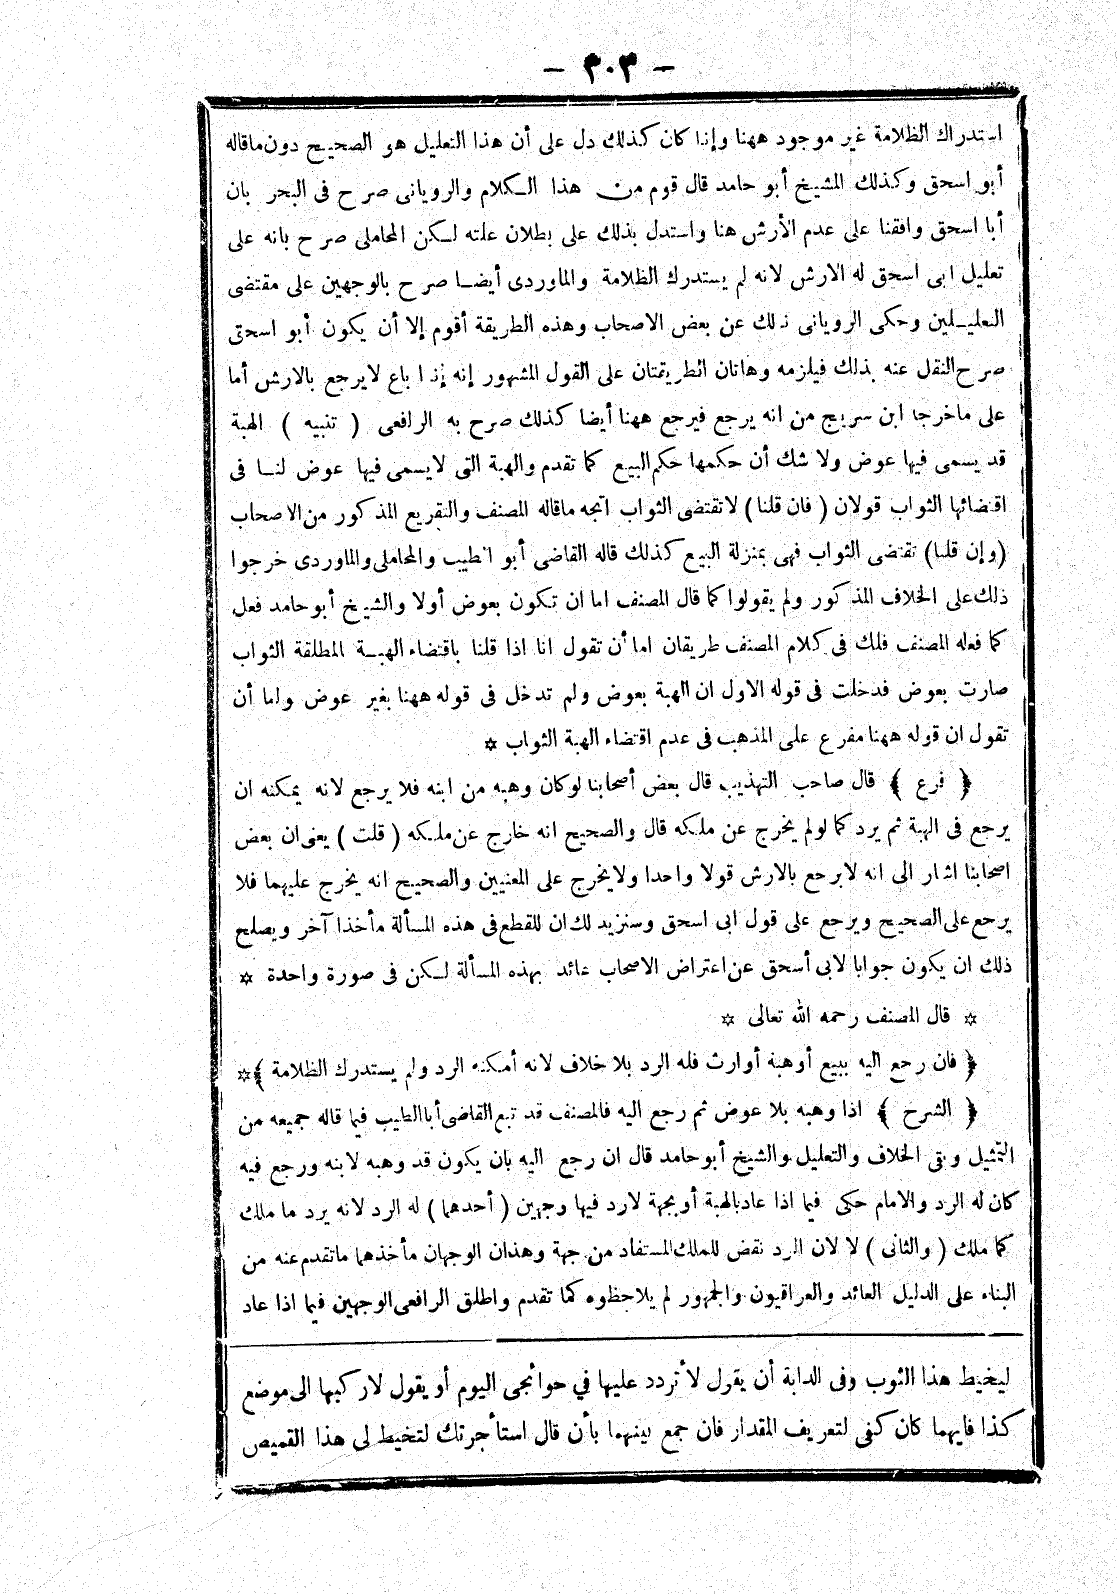 - ٣٠٣ -
استدراك الظلامة غير موجود ههنا وإذا كان كذلك دل على أن هذا التعليل هو الصحيح دون ماقاله
أبو اسحق وكذلك الشيخ أبو حامد قال قوم من هذا الكلام والرويانى صرح فى البحر بان
أبا اسحق وافقنا على عدم الأرش هنا واستدل بذلك على بطلان علته لكن المحاملى صرح بانه على
تعليل ابى اسحق له الارش لانه لم يستدرك الظلامة والماوردى أيضا صرح بالوجهين على مقتضى
التعليلين وحكى الرويانى ذلك عن بعض الاصحاب وهذه الطريقة أقوم إلا أن يكون أبو اسحق
صرح النقل عنه بذلك فيلزمه وهاتان الطريقتان على القول المشهور إنه إذا باع لايرجع بالارش أما
على ماخرجا ابن سريج من انه يرجع فيرجع ههنا أيضا كذلك صرح به الرافعى ( تنبيه ) الهبة
قد يسمى فيها عوض ولا شك أن حكمها حكم البيع كما تقدم والهبة التى لايسمى فيها عوض لنا فى
اقتضائها الثواب قولان ( فان قلنا ) لاتقتضى الثواب اتجه ماقاله المصنف والتفريع المذكور من الاصحاب
(وإن قلنا) تقتضى الثواب فهى بمنزلة البيع كذلك قاله القاضى أبو الطيب والمحاملى والماوردى خرجوا
ذلك على الخلاف المذكور ولم يقولوا كما قال المصنف اما ان تكون بعوض أولا والشيخ أبو حامد فعل
كما فعله المصنف فلك فى كلام المصنف طريقان اما أن تقول انا اذا قلنا باقتضاء الهبة المطلقة الثواب
صارت بعوض فدخلت فى قوله الاول ان الهبة بعوض ولم تدخل فى قوله ههنا بغير عوض واما أن
تقول ان قوله ههنا مفرع على المذهب فى عدم اقتضاء الهبة الثواب ✡
﴿ فرع ﴾ قال صاحب التهذيب قال بعض أصحابنا لو كان وهبه من ابنه فلا يرجع لانه يمكنه ان
يرجع فى الهبة ثم يرد كما لو لم يخرج عن ملكه قال والصحيح انه خارج عن ملكه ( قلت ) يعنى ان بعض
اصحابنا اشار الى انه لايرجع بالارش قولا واحدا ولايخرج على المعنيين والصحيح انه يخرج عليهما فلا
يرجع على الصحيح ويرجع على قول ابى اسحق وسنزيد لك ان للقطع فى هذه المسألة مأخذا آخر ويصلح
ذلك ان يكون جوابا لابى أسحق عن اعتراض الاصحاب عائد بهذه المسألة لكن فى صورة واحدة ✡
✡ قال المصنف رحمه الله تعالى ✡
﴿ فان رجع اليه ببيع أوهبة أوارث فله الرد بلا خلاف لانه أمكنه الرد ولم يستدرك الظلامة ﴾✡
﴿ الشرح ﴾ اذا وهبه بلا عوض ثم رجع اليه فالمصنف قد تبع القاضى أبا الطيب فيما قاله جميعه من
التمثيل ونفى الخلاف والتعليل والشيخ أبو حامد قال ان رجع اليه بان يكون قد وهبه لابنه ورجع فيه
كان له الرد والامام حكى فيما اذا عاد بالهبة أو بجهة لارد فيها وجهين ( أحدهما ) له الرد لانه يرد ما ملك
كما ملك ( والثانى ) لا لان الرد نقض للملك المستفاد من جهة وهذان الوجهان مأخذهما ماتقدم عنه من
البناء على الدليل العائد والعراقيون والجمهور لم يلاحظوه كما تقدم واطلق الرافعى الوجهين فيما اذا عاد
ليخيط هذا الثوب وفى الدابة أن يقول لأتردد عليها في حوائجى اليوم أو يقول لاركبها الى موضع
كذا فايهما كان كفى لتعريف المقدار فان جمع بينهما بأن قال استأجرتك لتخيط لى هذا القميص